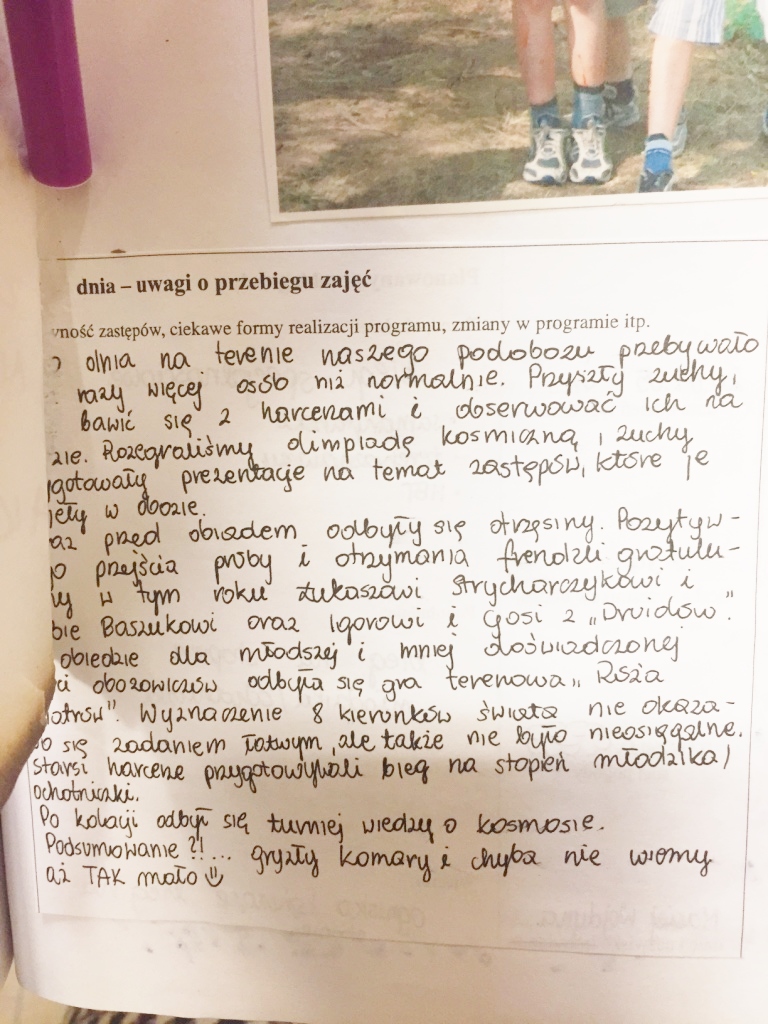 dnia – uwagi o przebiegu zajęć
zastępów, ciekawe formy realizacji programu, zmiany w programie itp.
dnia na terenie naszego podobozu przebywało
razy więcej osób niż normalnie. Przyszły zuchy,
bawić się z harcerzami i obserwować ich na
Rozegraliśmy olimpiadę kosmiczną, zuchy
prezentacje na temat zastępów, które je
w obozie.
przed obiadem odbyły się otrzęsiny. Pozytyw-
przejścia próby i otrzymania frendzli gratulu-
w tym roku Łukaszowi Strycharczykowi i
Baszukowi oraz Igorowi i Gosi z „Druidów".
obiedzie dla młodszej i mniej doświadczonej
obozowiczów odbyła się gra terenowa „Róża
Wyznaczenie 8 kierunków świata nie okaza-
się zadaniem łatwym, ale także nie było nieosiągalne.
Starsi harcerze przygotowywali bieg na stopień młodzika/
ochotniczki.
Po kolacji odbył się turniej wiedzy o kosmosie.
Podsumowanie?!... gryzły komary i chyba nie wiemy
aż TAK mało